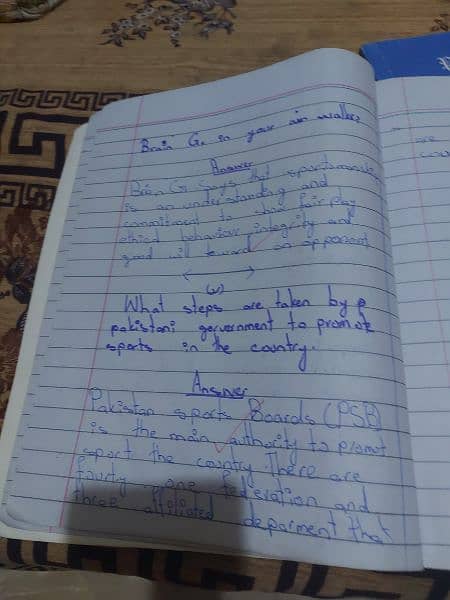 Brain G. in your own
Answer
Brain G. says that sportsman
is an understanding and
commitment to show fair play
ethical behaviour integrity and
good will toward an opponent
(v)
What steps are taken by
pakistani gervernment to promote
sports in the country.
Answer
Pakistan sports Boards (PSB)
is the main authority to promot
sport the country There are
fourty one federation and
three affiliated deparment that
are
cou